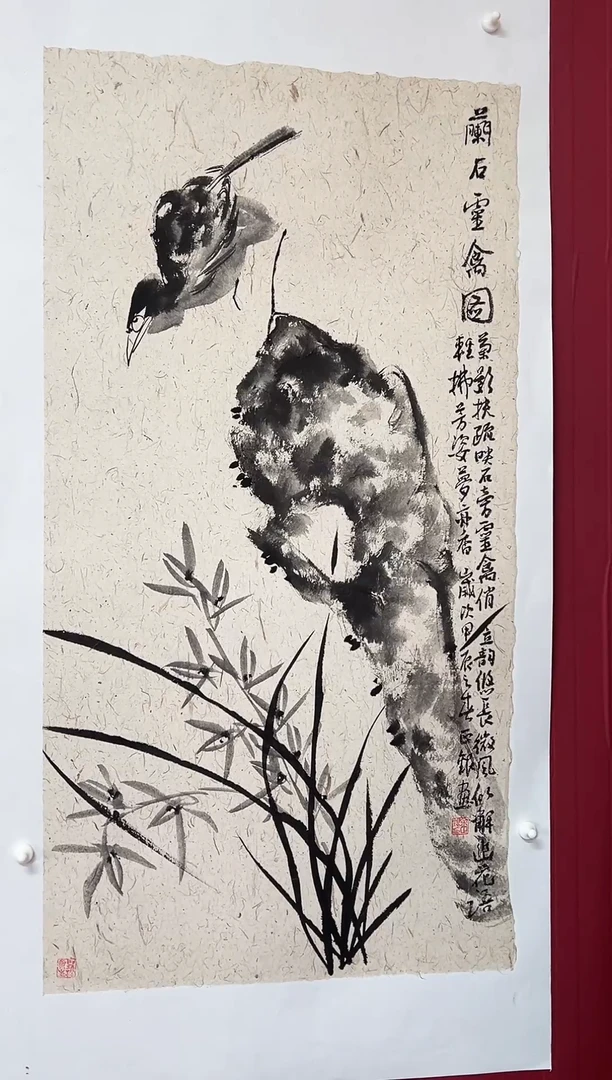 蘭石靈禽圖
葉影扶疏映石旁靈禽俏立韵悠長微風似解幽花語
輕拂芳姿夢亦香 歲次甲辰之春正钺畫